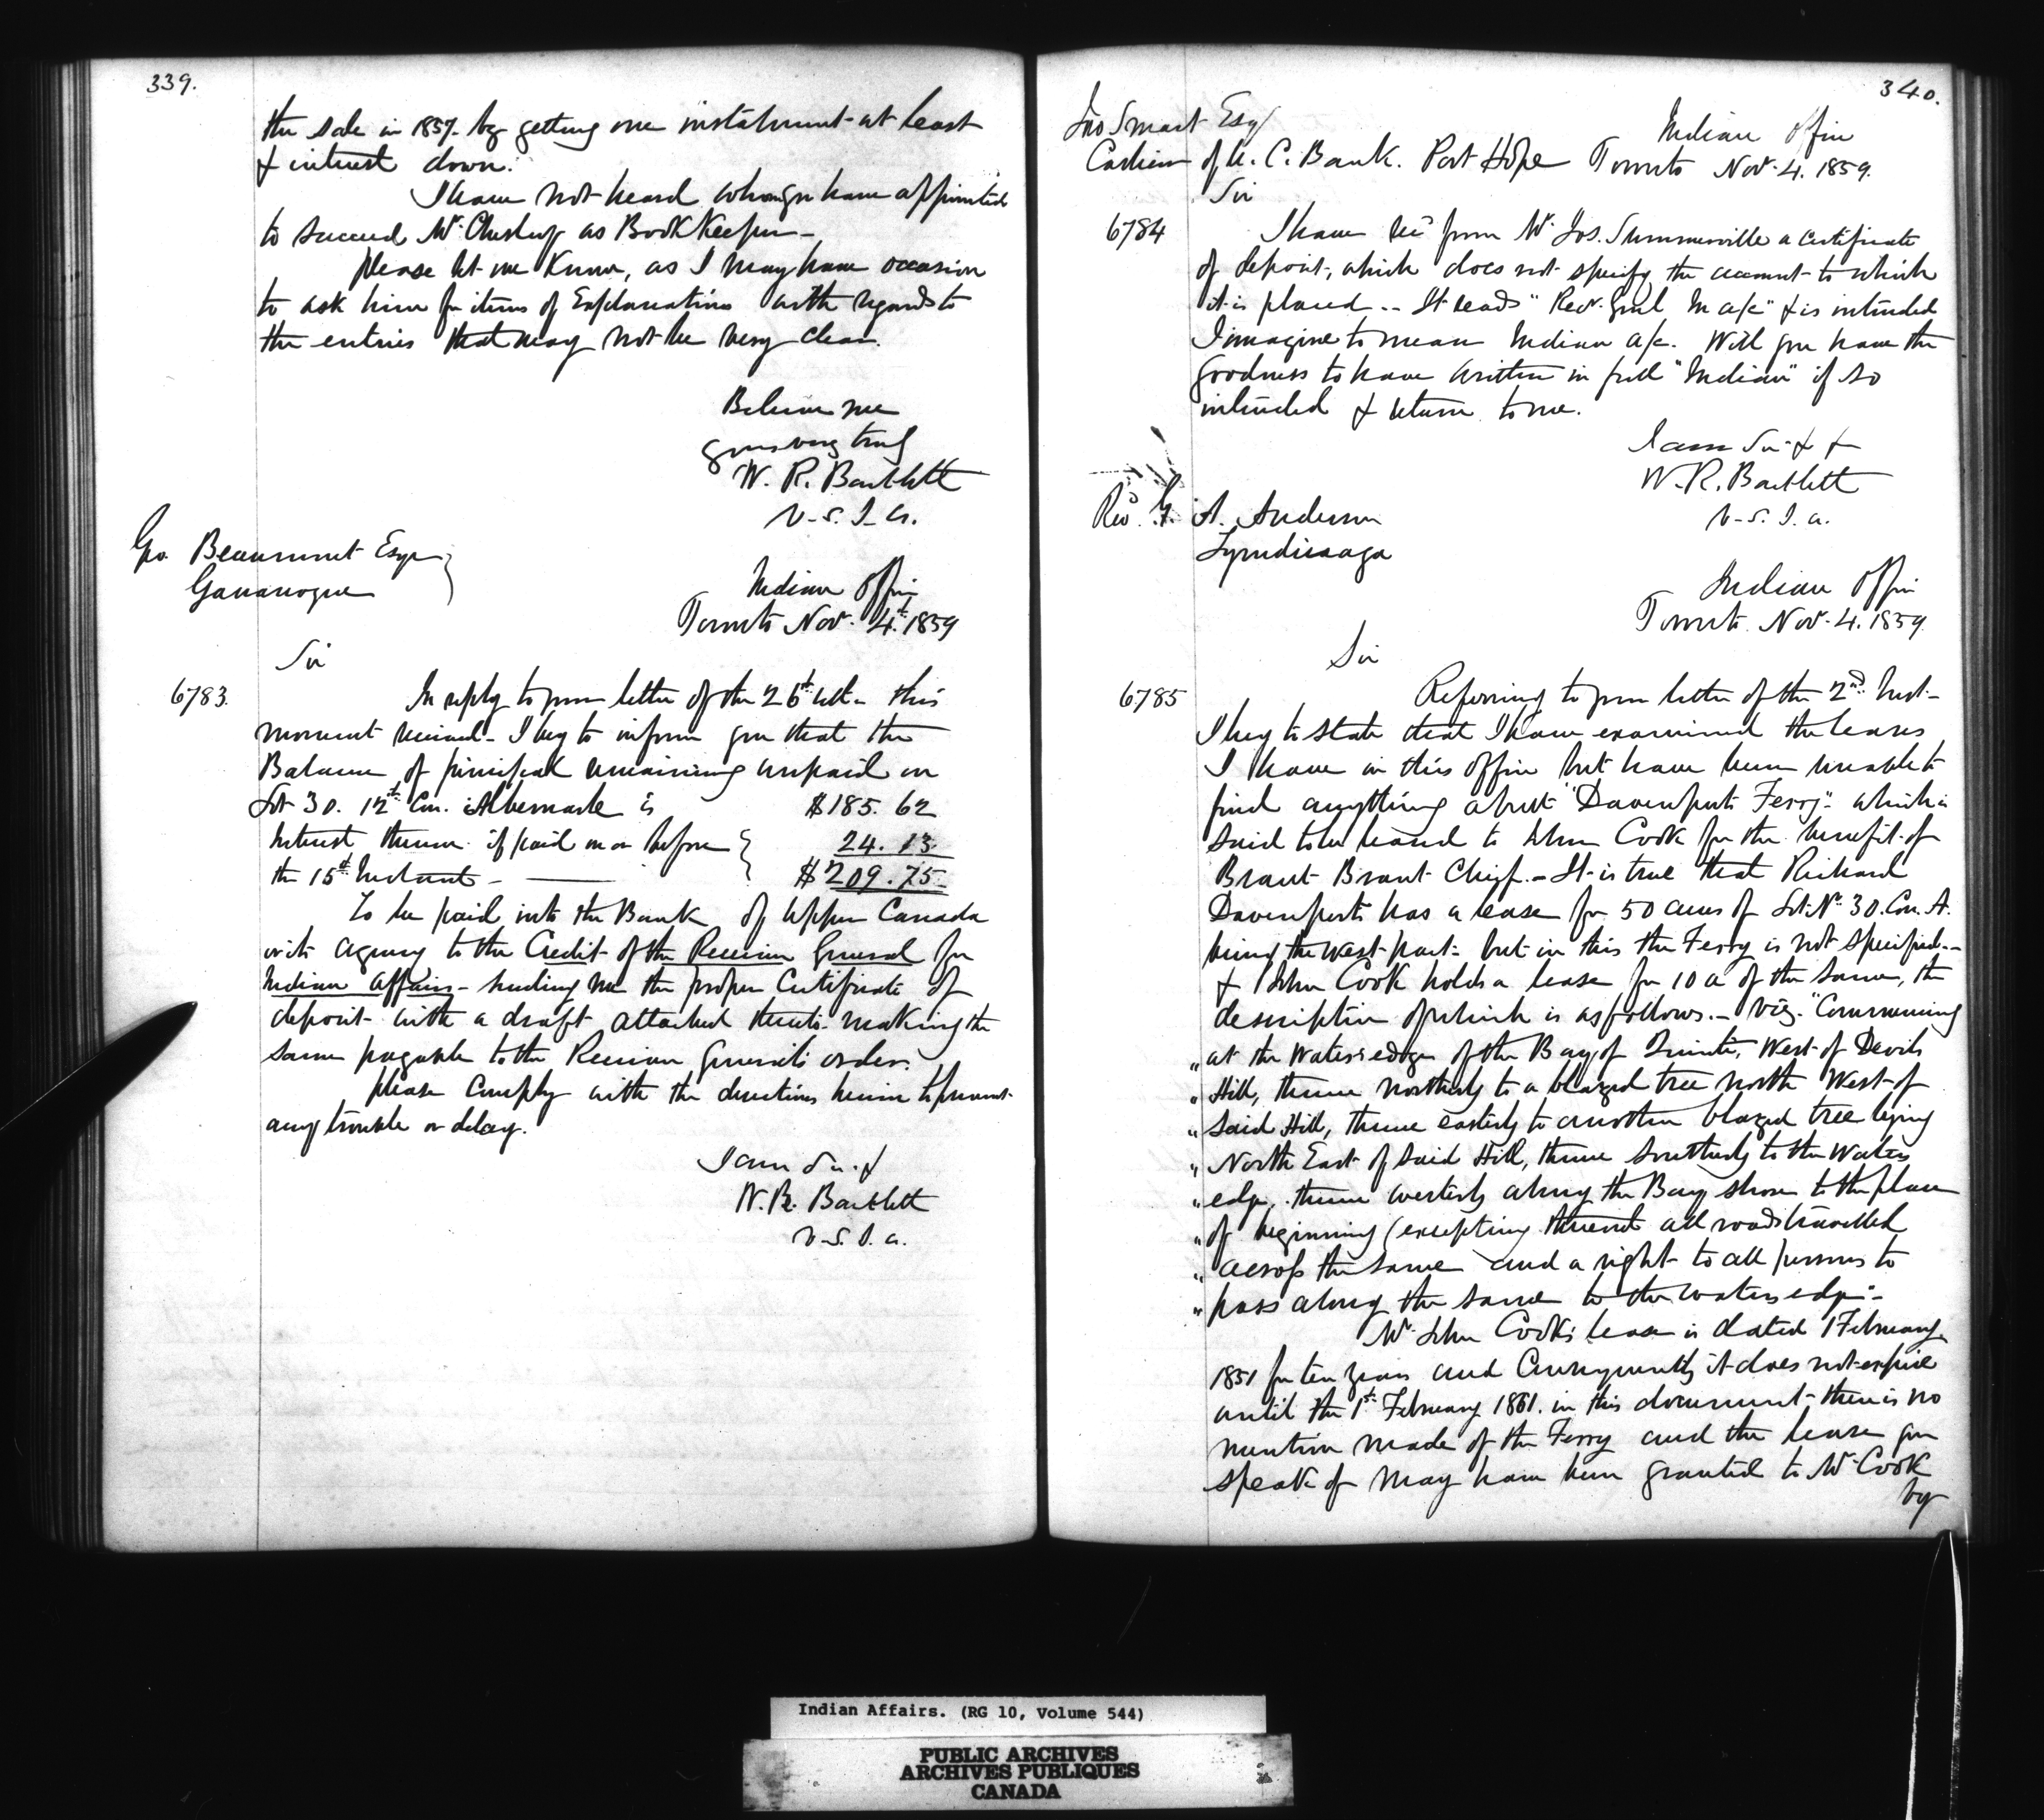 339.
the sale in 1857. by getting one instalment at least
& interest down.
I have not heard whom you have appointed
to succeed Mr. Chesley as Book Keeper -
please let me know, as I may have occasion
to ask him for items of Explanation with regards to
the entries that may not be very clear.
Believe me
yours very truly
W. R. Bartlett
V. S. I. A.
Geo. Beaumont Esqr
Gananoque
Indian Office
Toronto Nov. 4th 1859
Sir
6783.
In reply to your letter of the 26th ult. this
moment received - I beg to inform you that the
Balance of principal remaining unpaid on
Lot 30. 12th Con. Albemarle is $185.62
Interest thereon if paid on or before 24.13
the 15th Instant - $209.75
To be paid into the Bank of Upper Canada
or its agency to the Credit of the Receiver General for
Indian Affairs - sending me the proper Certificate of
deposit with a draft attached thereto making the
same payable to the Receiver General's order.
please comply with the directions herein to prevent
any trouble or delay.
I am Sir &
W. R. Bartlett
V. S. I. A.
340.
Jno Smart Esq
Indian Office
Cashier of U. C. Bank. Port Hope Toronto Nov. 4. 1859.
Sir
6784
I have recd from Mr. Jos. Summerville a Certificate
of deposit, which does not specify the account to which
it is placed -- It reads "Recr. Genl In a/c" & is intended
I imagine to mean Indian a/c. Will you have the
goodness to have written in full "Indian" if so
intended & return to me.
I am Sir & &
W. R. Bartlett
V. S. I. A.
Revd. G. A. Anderson
Tyendinaga
Indian Office
Toronto Nov. 4. 1859
Sir
6785
Referring to your letter of the 2nd Inst -
I beg to state that I have examined the leases
I have in this Office but have been unable to
find anything about "Davenports Ferry" which is
said to be leased to John Cook for the benefit of
Brant Brant Chief. - It is true that Richard
Davenport has a lease for 50 acres of Lot No. 30. Con. A.
being the West part - but in this the Ferry is not specified --
& John Cook holds a lease for 10 a of the same, the
description of which is as follows. - viz. "Commencing
"at the Waters edge of the Bay of Quinté, West of Devils
"Hill, thence northerly to a blazed tree north West of
"said Hill, thence easterly to another blazed tree lying
"North East of said Hill, thence southerly to the Waters
"edge, thence westerly along the Bay shore to the place
"of beginning (excepting thereout all roads travelled
"across the same and a right to all persons to
"pass along the same to the waters edge" -
Mr John Cook's lease is dated 1 February
1851 for ten years and Consequently it does not expire
until the 1st February 1861. in this document there is no
mention made of the Ferry and the lease you
speak of may have been granted to Mr Cook
by
Indian Affairs. (RG 10, Volume 544)
PUBLIC ARCHIVES
ARCHIVES PUBLIQUES
CANADA